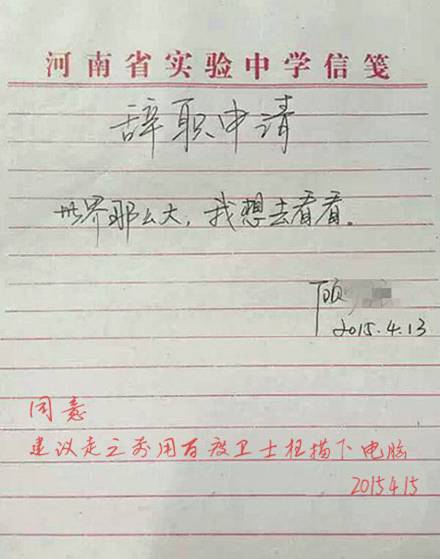 河南省实验中学信笺
辞职申请
世界那么大,我想去看看.
顾
2015.4.13
同意
建议走之前用百度卫士扫描下电脑
20154.15